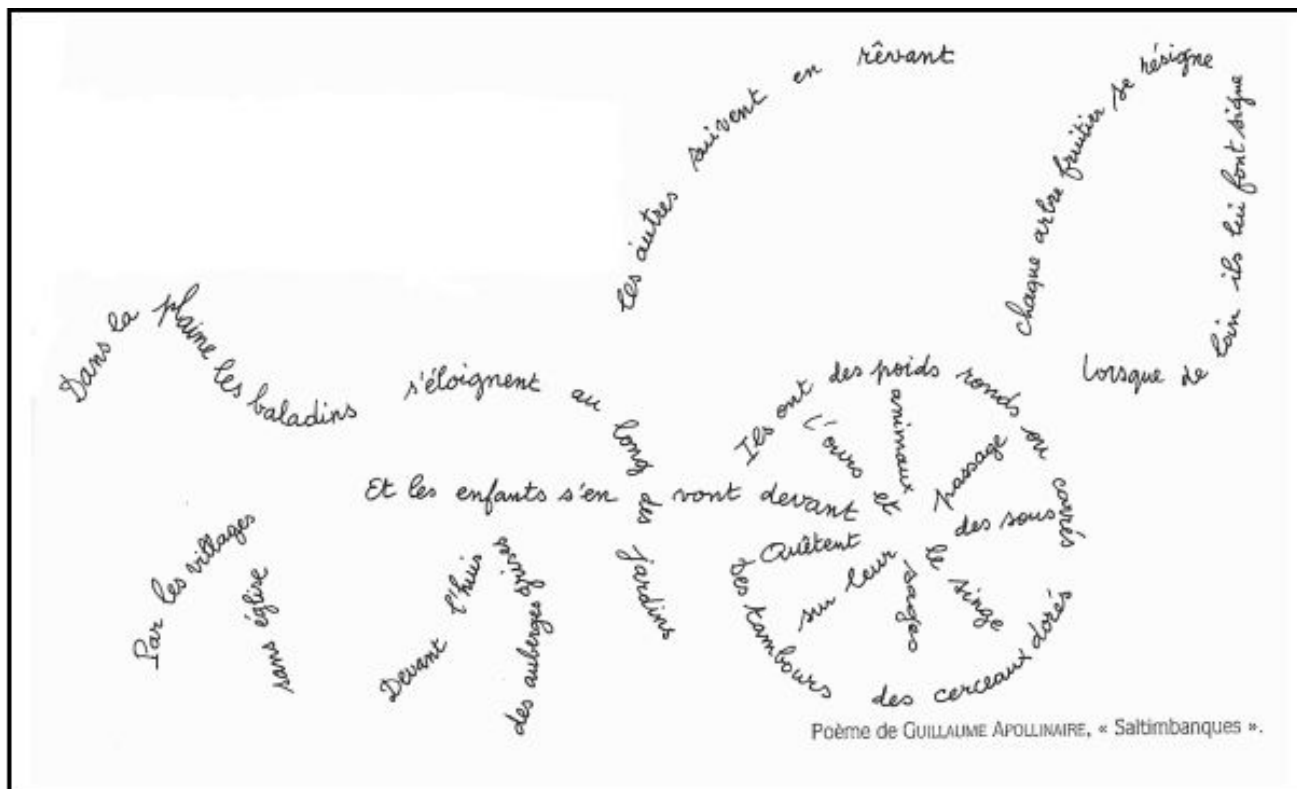 Dans la plaine les baladins
s'éloignent au long des jardins
Devant l'huis des auberges grises
Par les villages sans église
Et les enfants s'en vont devant
les autres suivent en rêvant
chaque arbre fruitier se résigne
Lorsque de loin ils lui font signe
Ils ont des poids ronds ou carrés
Des tambours des cerceaux dorés
L'ours et le singe
animaux sages
Quêtent des sous
sur leur passage
Poème de GUILLAUME APOLLINAIRE, « Saltimbanques ».